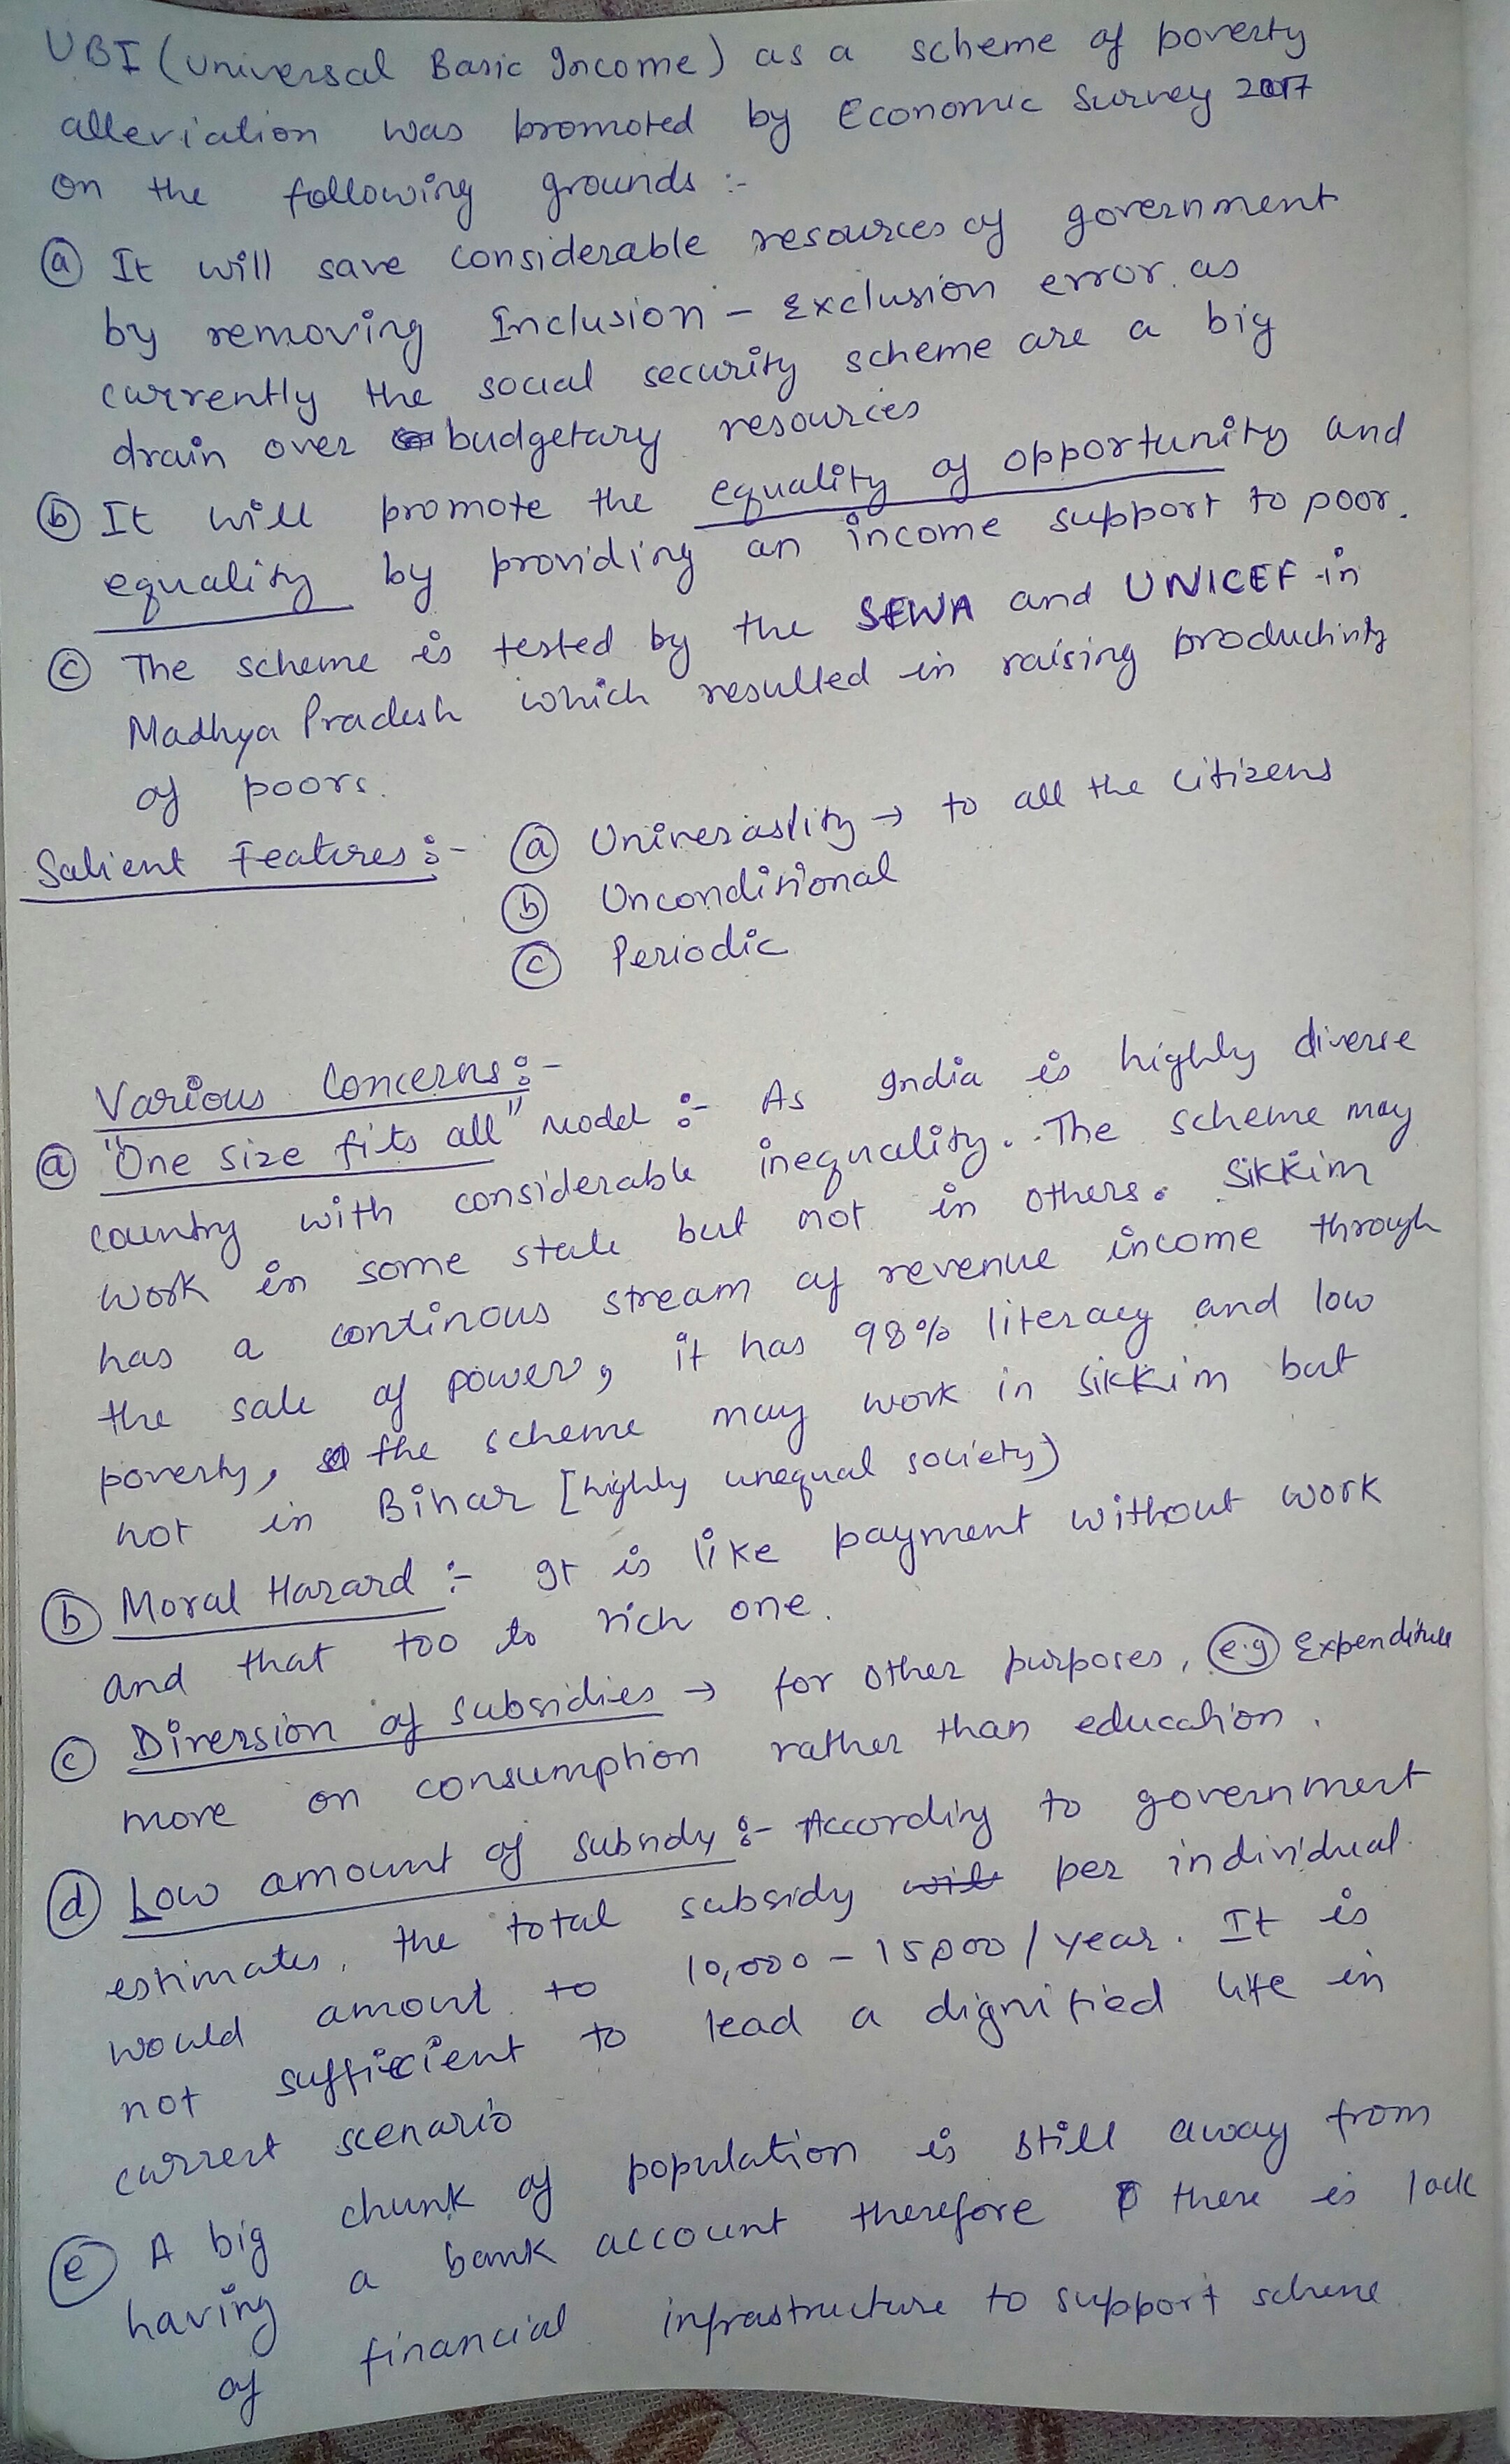 UBI (Universal Basic Income) as a scheme of poverty
alleviation was promoted by Economic Survey 2017
on the following grounds :-
(a) It will save considerable resources of government
by removing Inclusion - Exclusion error as
currently the social security scheme are a big
drain over budgetary resources
(b) It will promote the equality of opportunity and
equality by providing an income support to poor.
(c) The scheme is tested by the SEWA and UNICEF in
Madhya Pradesh which resulted in raising productivity
of poors.
Salient Features :- (a) Univeraslity → to all the citizens
(b) Unconditional
(c) Periodic
Various Concerns :-
(a) "One size fits all" model :- As India is highly diverse
country with considerable inequality. The scheme may
work in some state but not in others. Sikkim
has a continous stream of revenue income through
the sale of power, it has 98% literacy and low
poverty, the scheme may work in Sikkim but
not in Bihar [highly unequal society)
(b) Moral Hazard :- It is like payment without work
and that too to rich one.
(c) Diversion of subsidies → for other purposes, (e.g) Expenditure
more on consumption rather than education.
(d) Low amount of subsidy :- According to government
estimates, the total subsidy per individual
would amount to 10,000 - 15,000 / year. It is
not sufficient to lead a dignified life in
current scenario
(e) A big chunk of population is still away from
having a bank account therefore there is lack
of financial infrastructure to support scheme